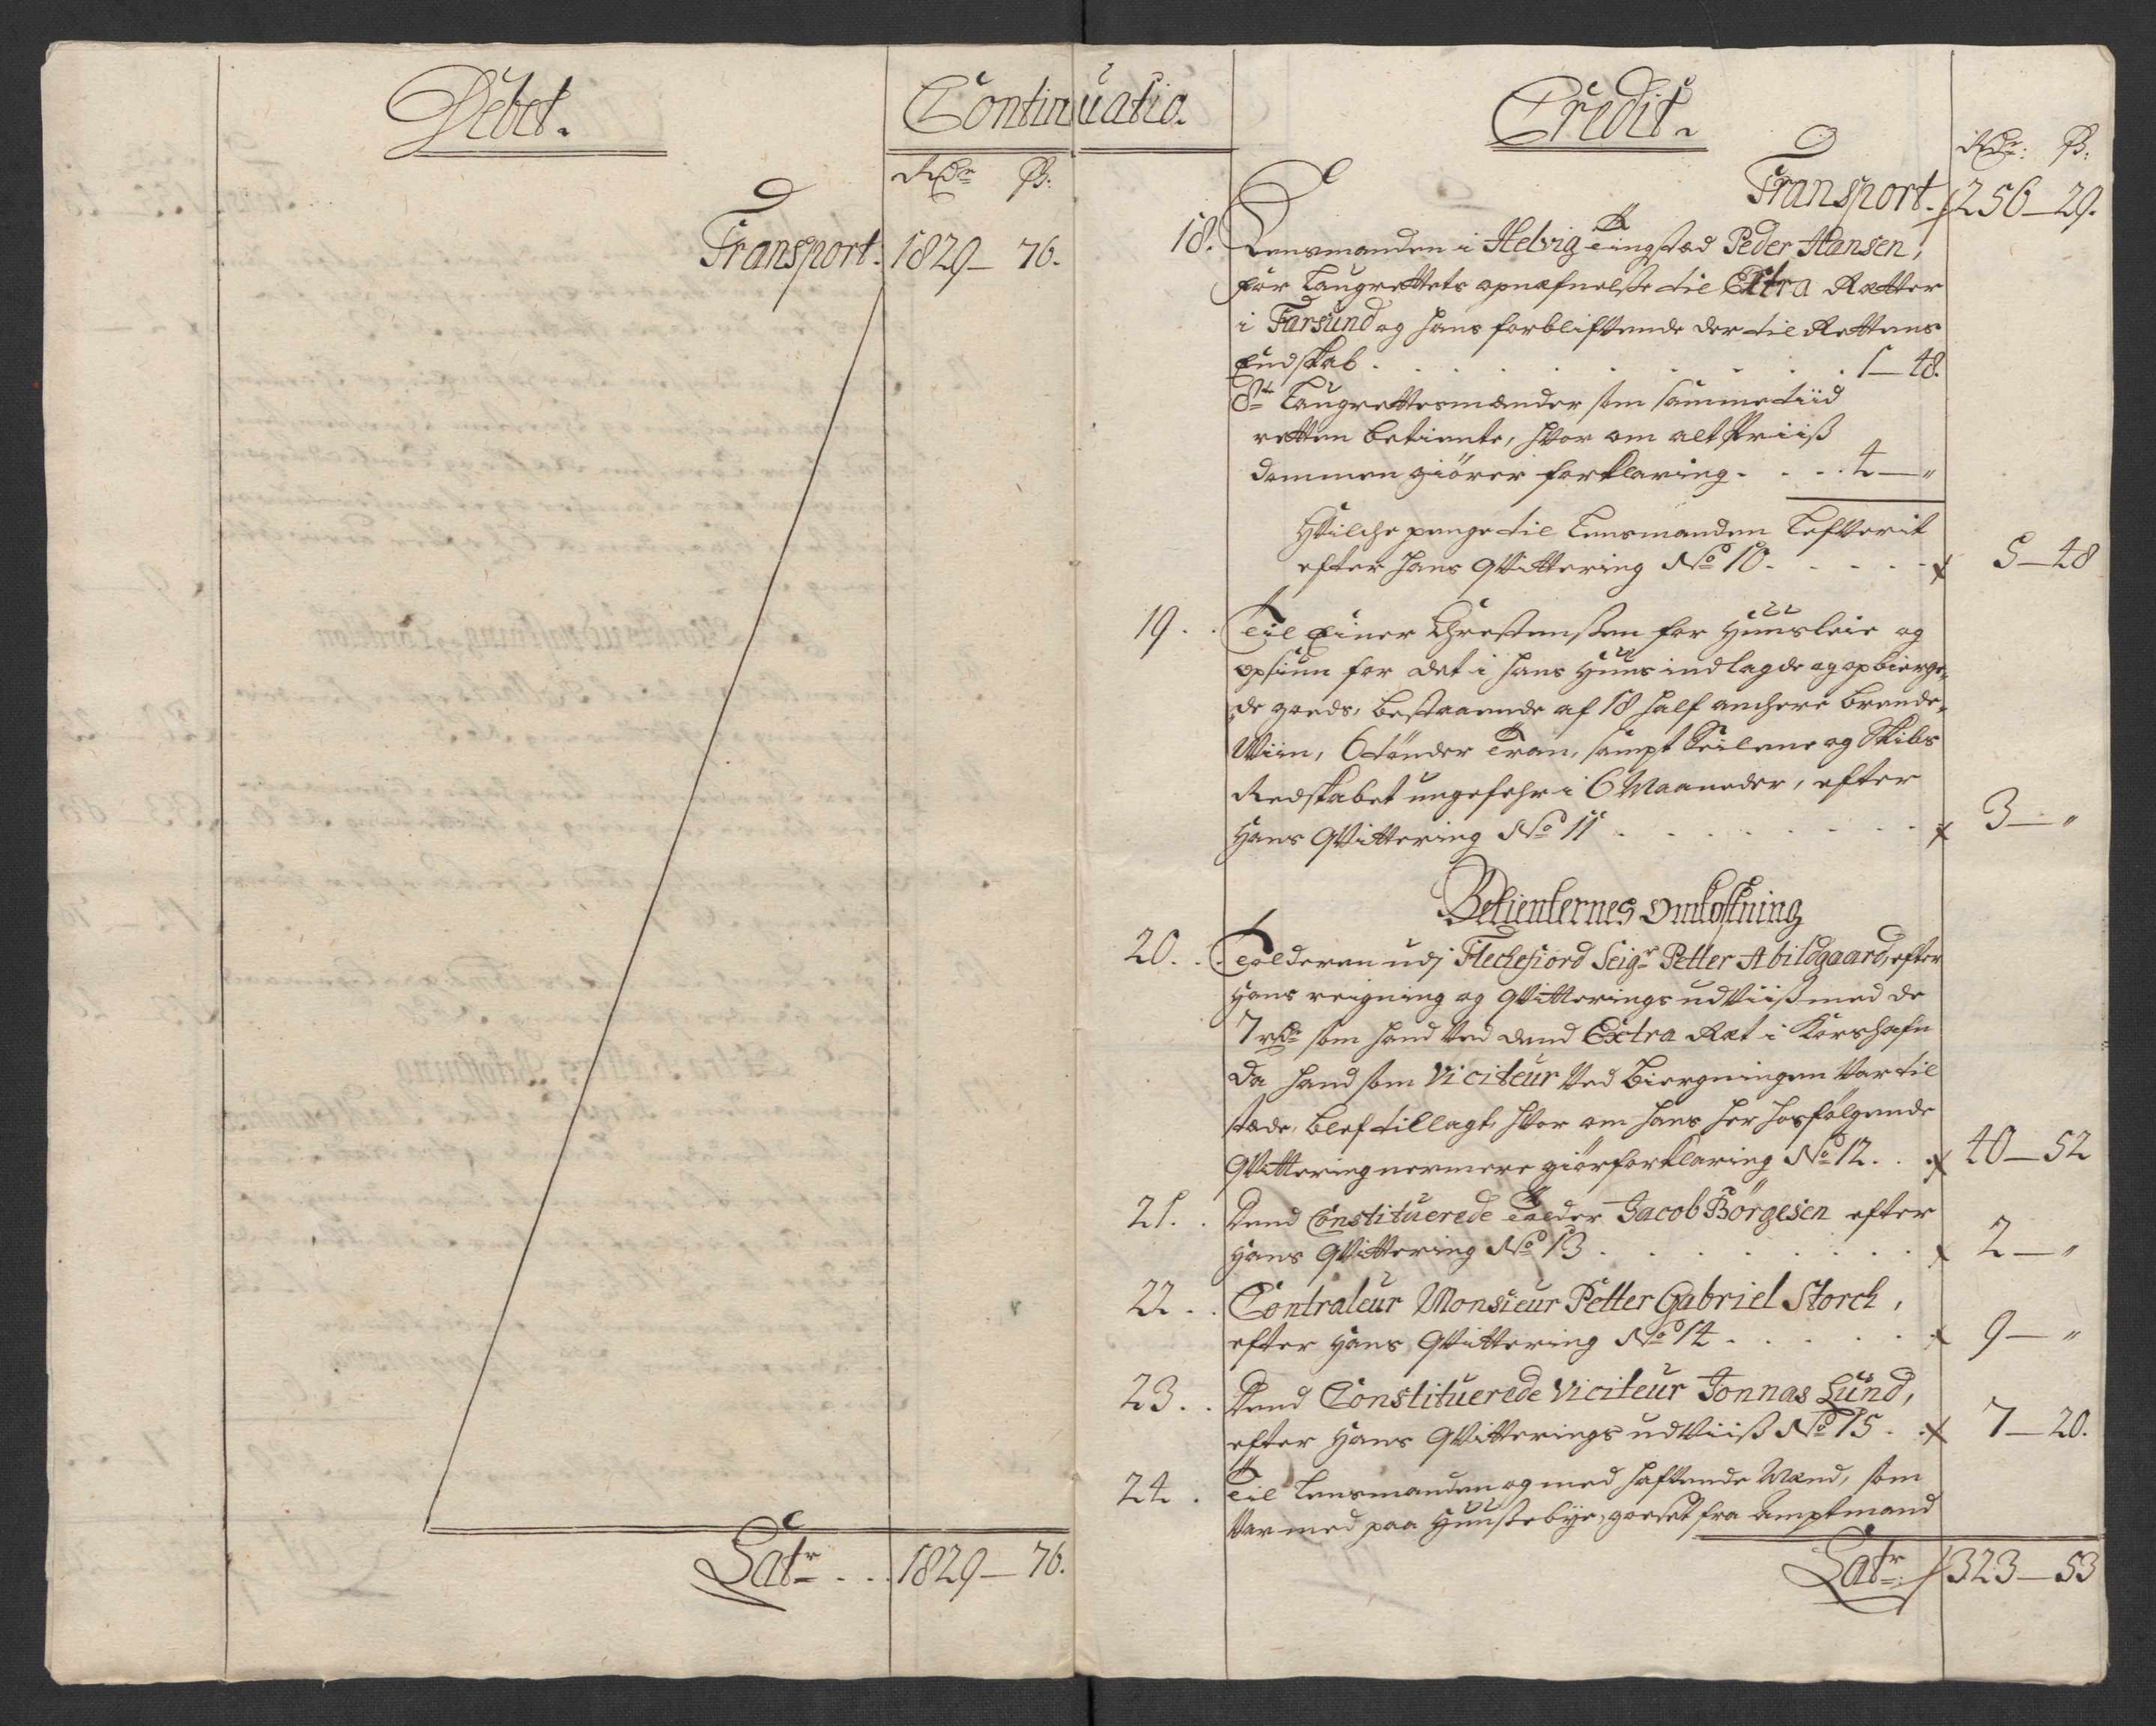 Debet.
Continuatio.
Rdr ß:
Transport. 1829 — 76.
Latr . . . 1829 — 76.
Credit.
Rdr: ß:
Transport. 256 — 29.
18. Lensmanden i Helvig tingsted Peder Hansen,
for Laugrettets opnæfnelse til Extra Retter
i Farsund og hans forblifvende der til Rettens
Endskab . . . . . . . . . 1 — 48.
8te Laugrettesmænder som samme tiid
retten betiente, hvor om alt Priiß
dommen giører forklaring . . . . 4 — "
Hvilche penge til Lensmanden lefverit
efter hans qvittering No 10 . . . . . 5 — 48
19. . Til Einer Chrestensen for Huusleie og
opsiun for det i hans Huus indlagde og opbierge-
de goeds, bestaaende af 18 half anchere brende-
Wiin, 6 tønder Tran, sampt Seilene og Skibs
Redskabet ungefehr i 6 Maaneder, efter
Hans Qvittering No 11 . . . . . . . 3 — "
Betienternes Omkostning
20. . . Tolderen udj Flechefiord Seigr Petter Abildgaard, efter
Hans reigning og Qvitterings udviiß med de
7 rdr som hand ved dend Extra Ret i Korshafn
da hand som Viciteur ved biergningen var til
stede, blef tillagt, hvor om hans her hosfølgende
Qvittering nermere giør forklaring No 12 . . 40 — 52
21. . Dend Constituerede Tolder Jacob Börgesen efter
Hans Qvittering No 13 . . . . . . . . 2 — "
22. . . Contraleur Monsieur Petter Gabriel Storch,
efter Hans Qvittering No 14 . . . . . 9 — "
23. . Dend Constituerede Viciteur Jonnas Lund,
efter Hans Qvitterings udviiß No 15 . . 7 — 20.
24. . Til Lensmanden og med hafvende Mænd, som
var med paa Huusebye, goedset fra Amptmand
Latr: 323 — 53